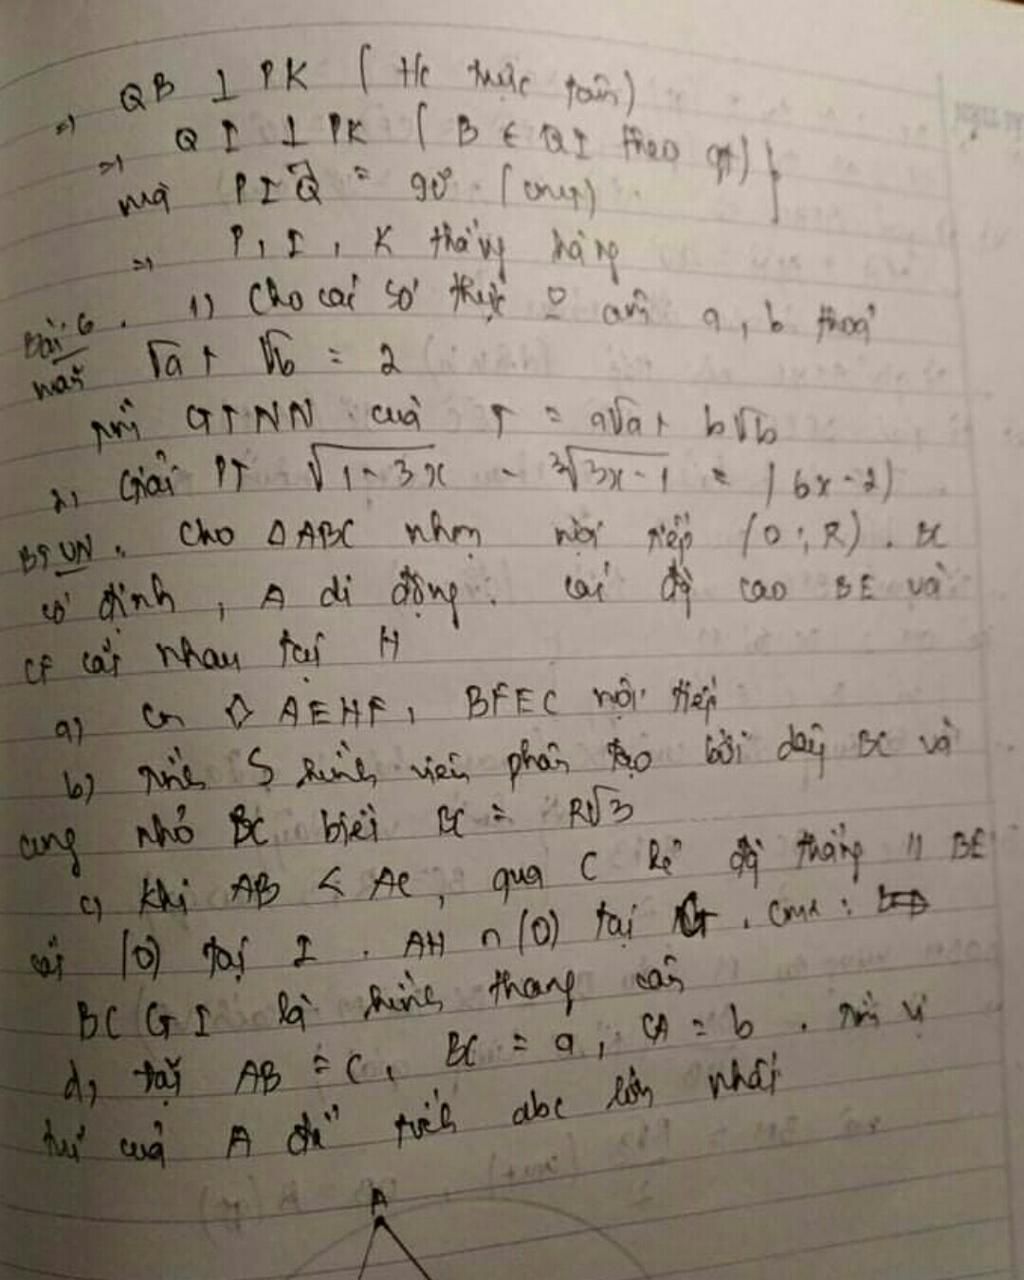 => QB ⊥ PK ( t/c trực tâm)
=> QI ⊥ PK ( B ∈ QI theo gt) }
mà PIQ̂ = 90° (cmt)
=> P, I, K thẳng hàng
Bài 6. 1) Cho các số thực ko âm a, b thoả
mãn √a + √b = 2
Tìm GTNN của T = a√a + b√b
2, Giải PT √1-3x - ³√3x-1 = |6x-2|
BTVN. Cho ΔABC nhọn nội tiếp (O;R). BC
cố định, A di động. Các đg cao BE và
CF cắt nhau tại H
a) Cm ◇ AEHF, BFEC nội tiếp
b) Tính S hình viên phân tạo bởi dây BC và
cung nhỏ BC biết BC = R√3
c, Khi AB < AC, qua C kẻ đg thẳng // BE
cắt (O) tại I. AH ∩ (O) tại G. CMR:
BCGI là hình thang cân
d, Đặt AB = c, BC = a, CA = b. Tìm vị
trí của A để tích abc lớn nhất
A